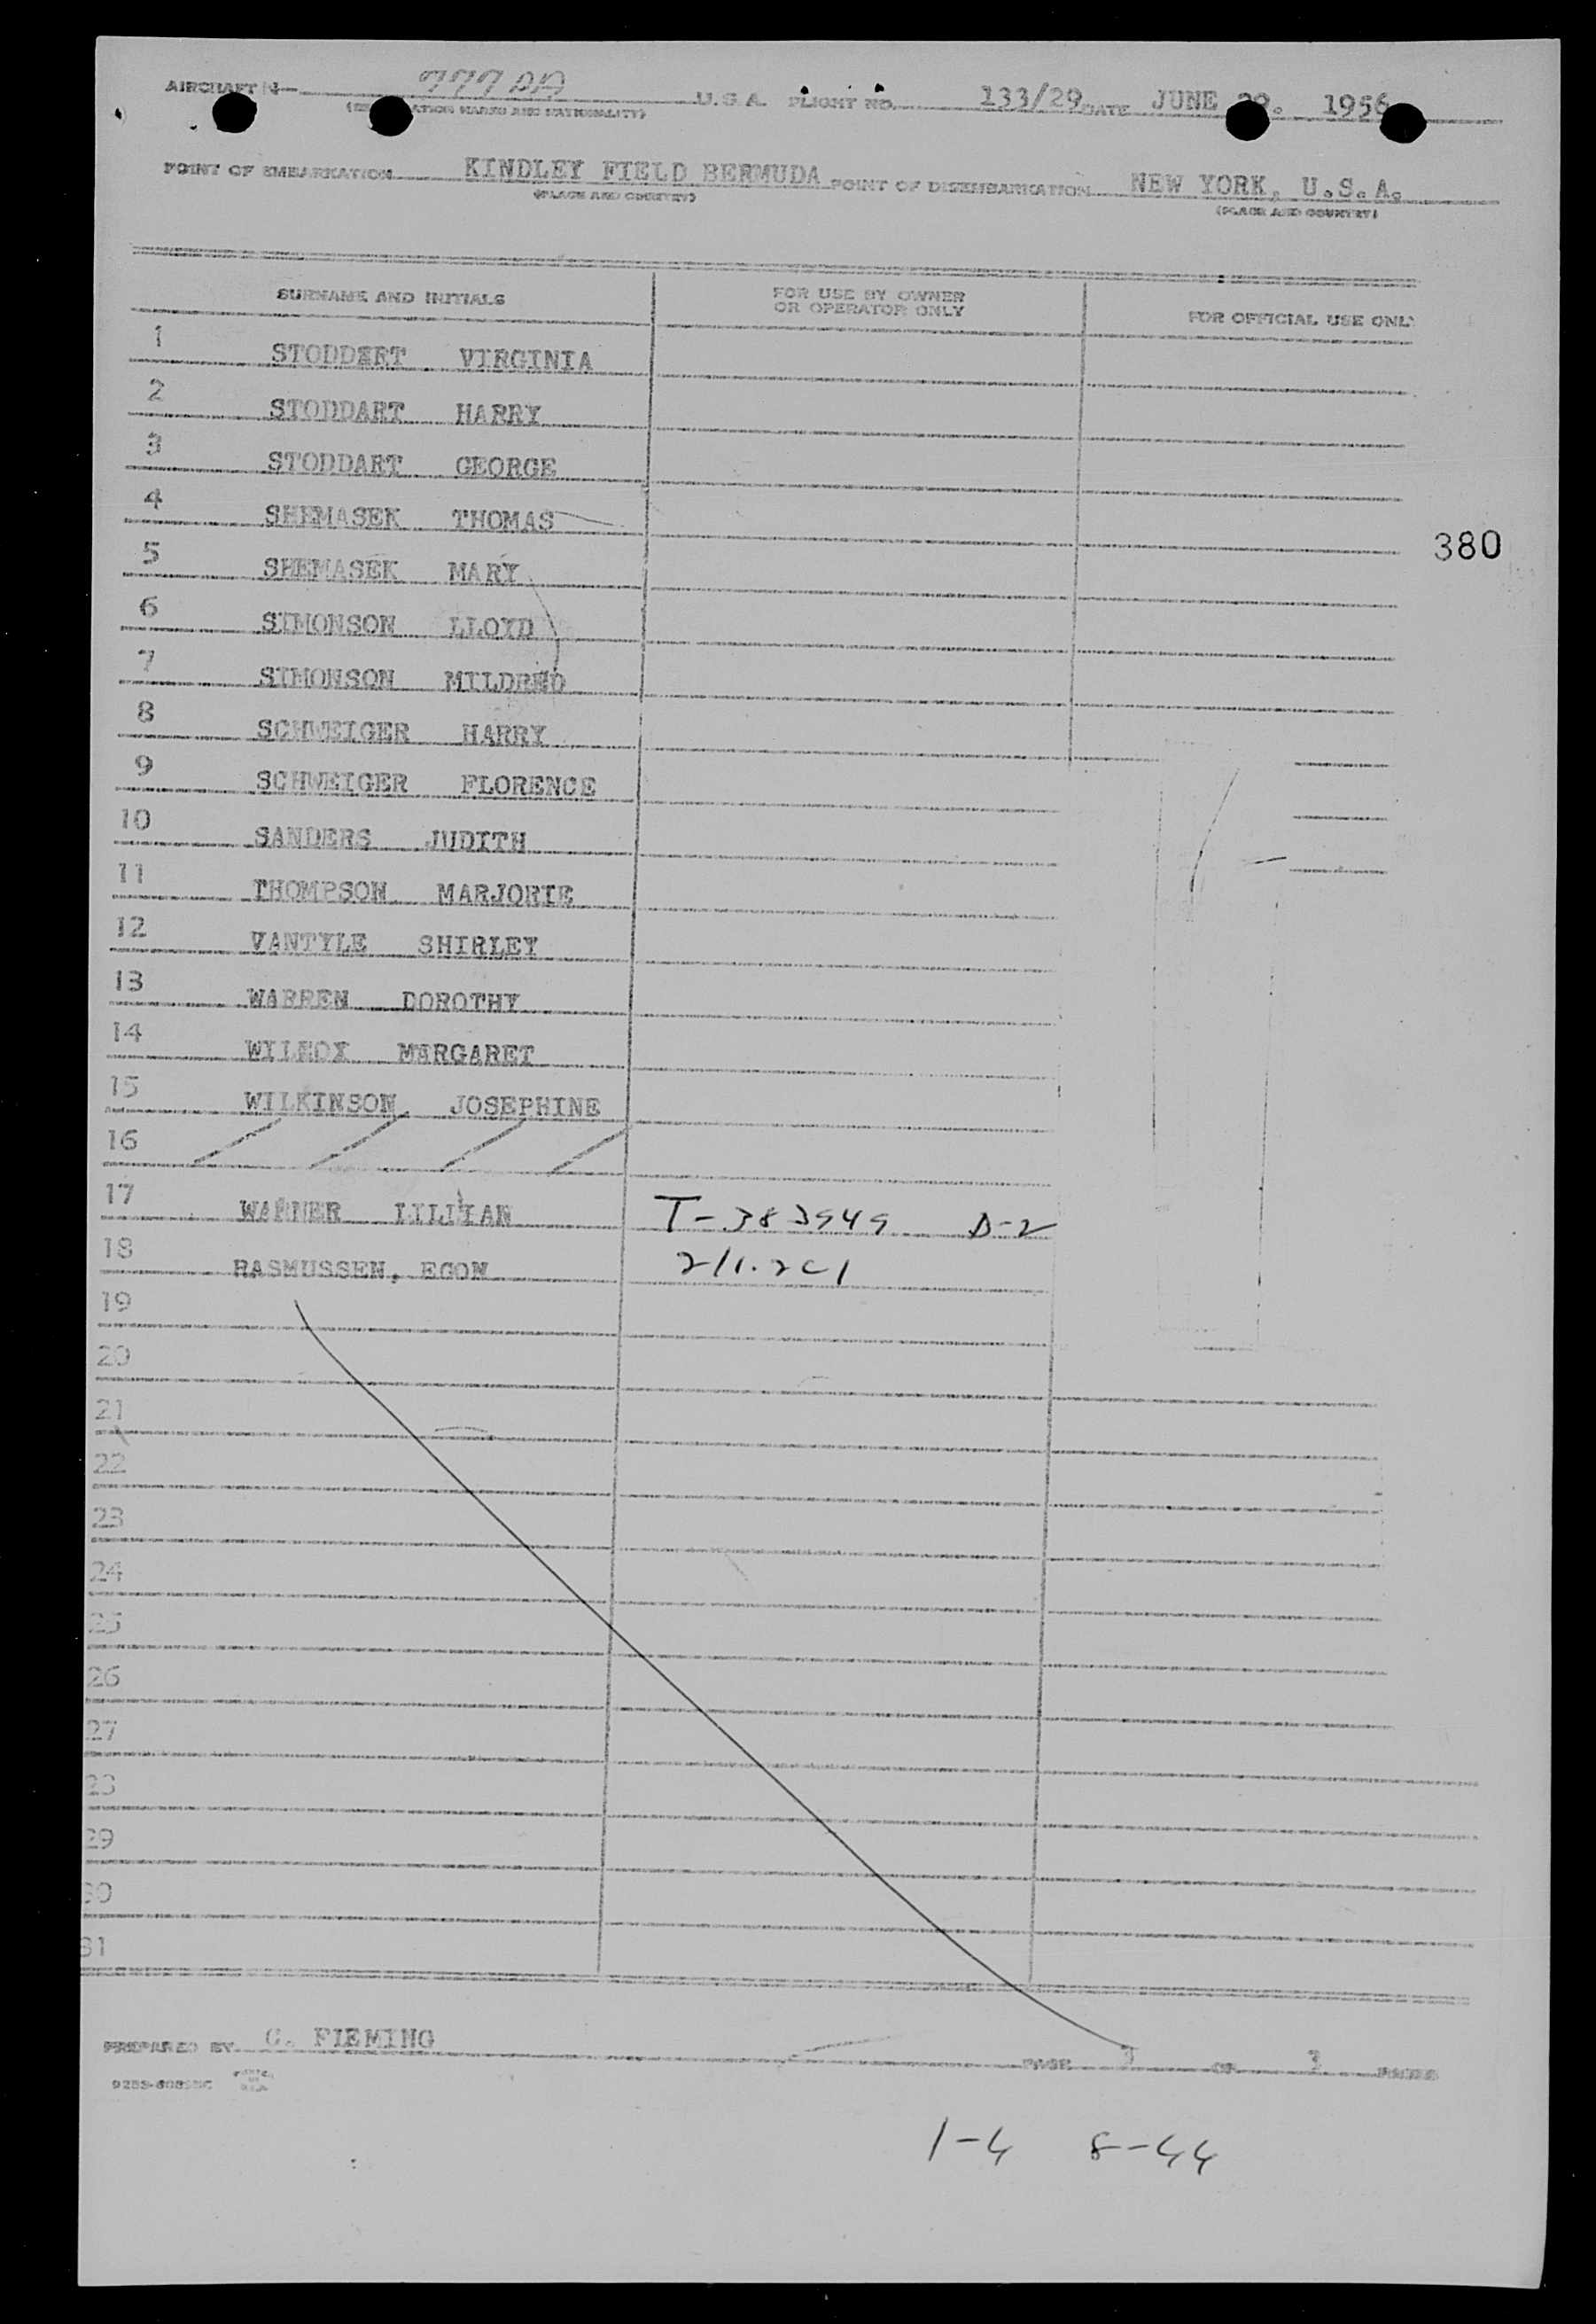 AIRCHAFT N- 777PA U.S.A. FLIGHT NO. 133/29 DATE JUNE 29. 1956
ATION MARKS AND NATIONALITY)
POINT OF EMBARKATION KINDLEY FIELD BERMUDA POINT OF DISEMBARKATION NEW YORK, U.S.A.
(PLACE AND COUNTRY) (PLACE AND COUNTRY)
SURNAME AND INITIALS FOR USE BY OWNER OR OPERATOR ONLY FOR OFFICIAL USE ONLY
1 STODDART VIRGINIA
2 STODDART HARRY
3 STODDART GEORGE
4 SHEMASEK THOMAS
380
5 SHEMASEK MARY
6 SIMONSON LLOYD
7 SIMONSON MILDRED
8 SCHWEIGER HARRY
9 SCHWEIGER FLORENCE
10 SANDERS JUDITH
11 THOMPSON MARJORIE
12 VANTYLE SHIRLEY
13 WARREN DOROTHY
14 WILCOX MARGARET
15 WILKINSON JOSEPHINE
16 / / / /
17 WARNER LILLIAN T-383949 D-2
18 RASMUSSEN, EGON 211.201
19
20
21
22
23
24
25
26
27
28
29
30
31
PREPARED BY C. FLEMING PAGE OF PAGES
1-4 8-44